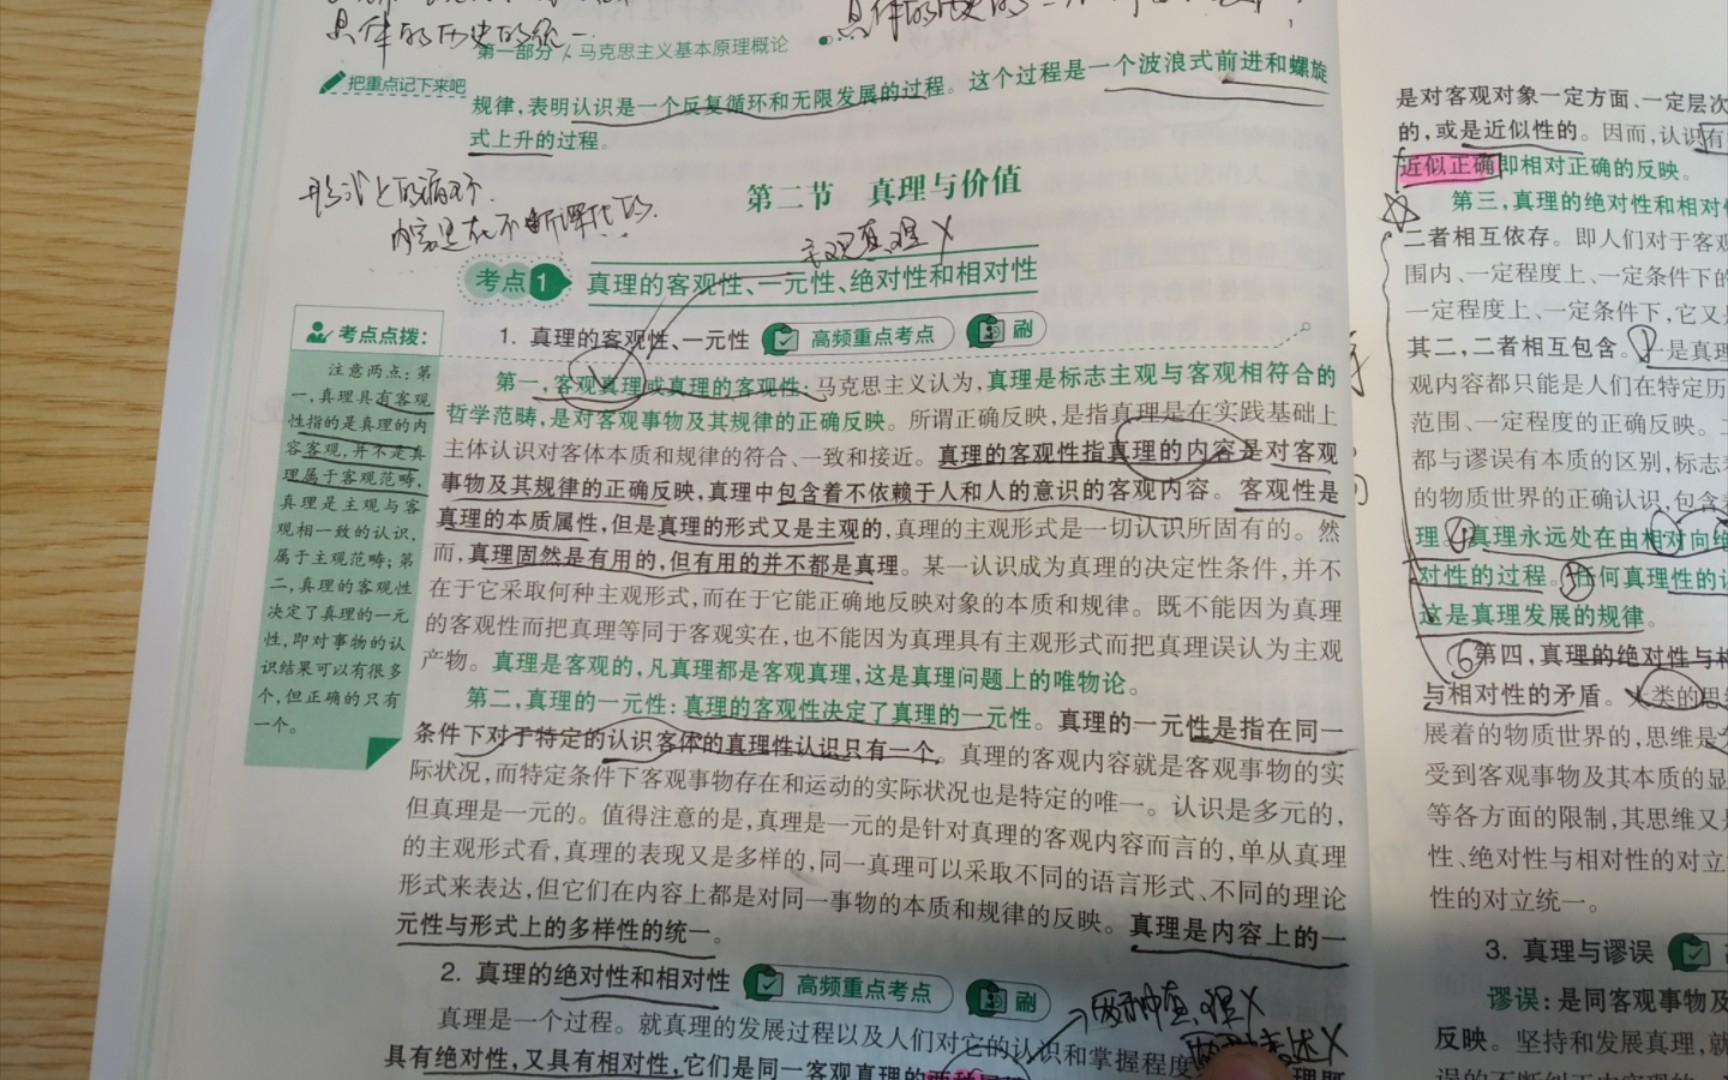 具体的历史的统一
具体的历史的
第一部分 / 马克思主义基本原理概论
把重点记下来吧
规律，表明认识是一个反复循环和无限发展的过程。这个过程是一个波浪式前进和螺旋
式上升的过程。
形式上的循环
内容是在不断深化的.
第二节 真理与价值
主观真理 X
考点1 真理的客观性、一元性、绝对性和相对性
1. 真理的客观性、一元性 高频重点考点 刷
第一，客观真理或真理的客观性：马克思主义认为，真理是标志主观与客观相符合的
哲学范畴，是对客观事物及其规律的正确反映。所谓正确反映，是指真理是在实践基础上
主体认识对客体本质和规律的符合、一致和接近。真理的客观性指真理的内容是对客观
事物及其规律的正确反映，真理中包含着不依赖于人和人的意识的客观内容。客观性是
真理的本质属性，但是真理的形式又是主观的，真理的主观形式是一切认识所固有的。然
而，真理固然是有用的，但有用的并不都是真理。某一认识成为真理的决定性条件，并不
在于它采取何种主观形式，而在于它能正确地反映对象的本质和规律。既不能因为真理
的客观性而把真理等同于客观实在，也不能因为真理具有主观形式而把真理误认为主观
产物。真理是客观的，凡真理都是客观真理，这是真理问题上的唯物论。
第二，真理的一元性：真理的客观性决定了真理的一元性。真理的一元性是指在同一
条件下对于特定的认识客体的真理性认识只有一个。真理的客观内容就是客观事物的实
际状况，而特定条件下客观事物存在和运动的实际状况也是特定的唯一。认识是多元的，
但真理是一元的。值得注意的是，真理是一元的是针对真理的客观内容而言的，单从真理
的主观形式看，真理的表现又是多样的，同一真理可以采取不同的语言形式、不同的理论
形式来表达，但它们在内容上都是对同一事物的本质和规律的反映。真理是内容上的一
元性与形式上的多样性的统一。
2. 真理的绝对性和相对性 高频重点考点 刷
两种真理X
表述X
真理是一个过程。就真理的发展过程以及人们对它的认识和掌握程度
具有绝对性，又具有相对性，它们是同一客观真理的
考点点拨：
注意两点：第
一，真理具有客观
性指的是真理的内
容客观，并不是真
理属于客观范畴，
真理是主观与客
观相一致的认识，
属于主观范畴；第
二，真理的客观性
决定了真理的一元
性，即对事物的认
识结果可以有很多
个，但正确的只有
一个。
是对客观对象一定方面、一定层次
的，或是近似性的。因而，认识有
近似正确即相对正确的反映。
第三，真理的绝对性和相对
二者相互依存。即人们对于客观
围内、一定程度上、一定条件下的
一定程度上、一定条件下，它又
其二，二者相互包含。①一是真理
观内容都只能是人们在特定历
范围、一定程度的正确反映。
都与谬误有本质的区别，标志
的物质世界的正确认识，包含
理。真理永远处在由相对向绝
对性的过程。任何真理性的认
这是真理发展的规律。
⑥第四，真理的绝对性与相
与相对性的矛盾。人类的思
展着的物质世界的，思维是
受到客观事物及其本质的显
等各方面的限制，其思维又
性、绝对性与相对性的对立
性的对立统一。
3. 真理与谬误
谬误：是同客观事物及
反映。坚持和发展真理，就